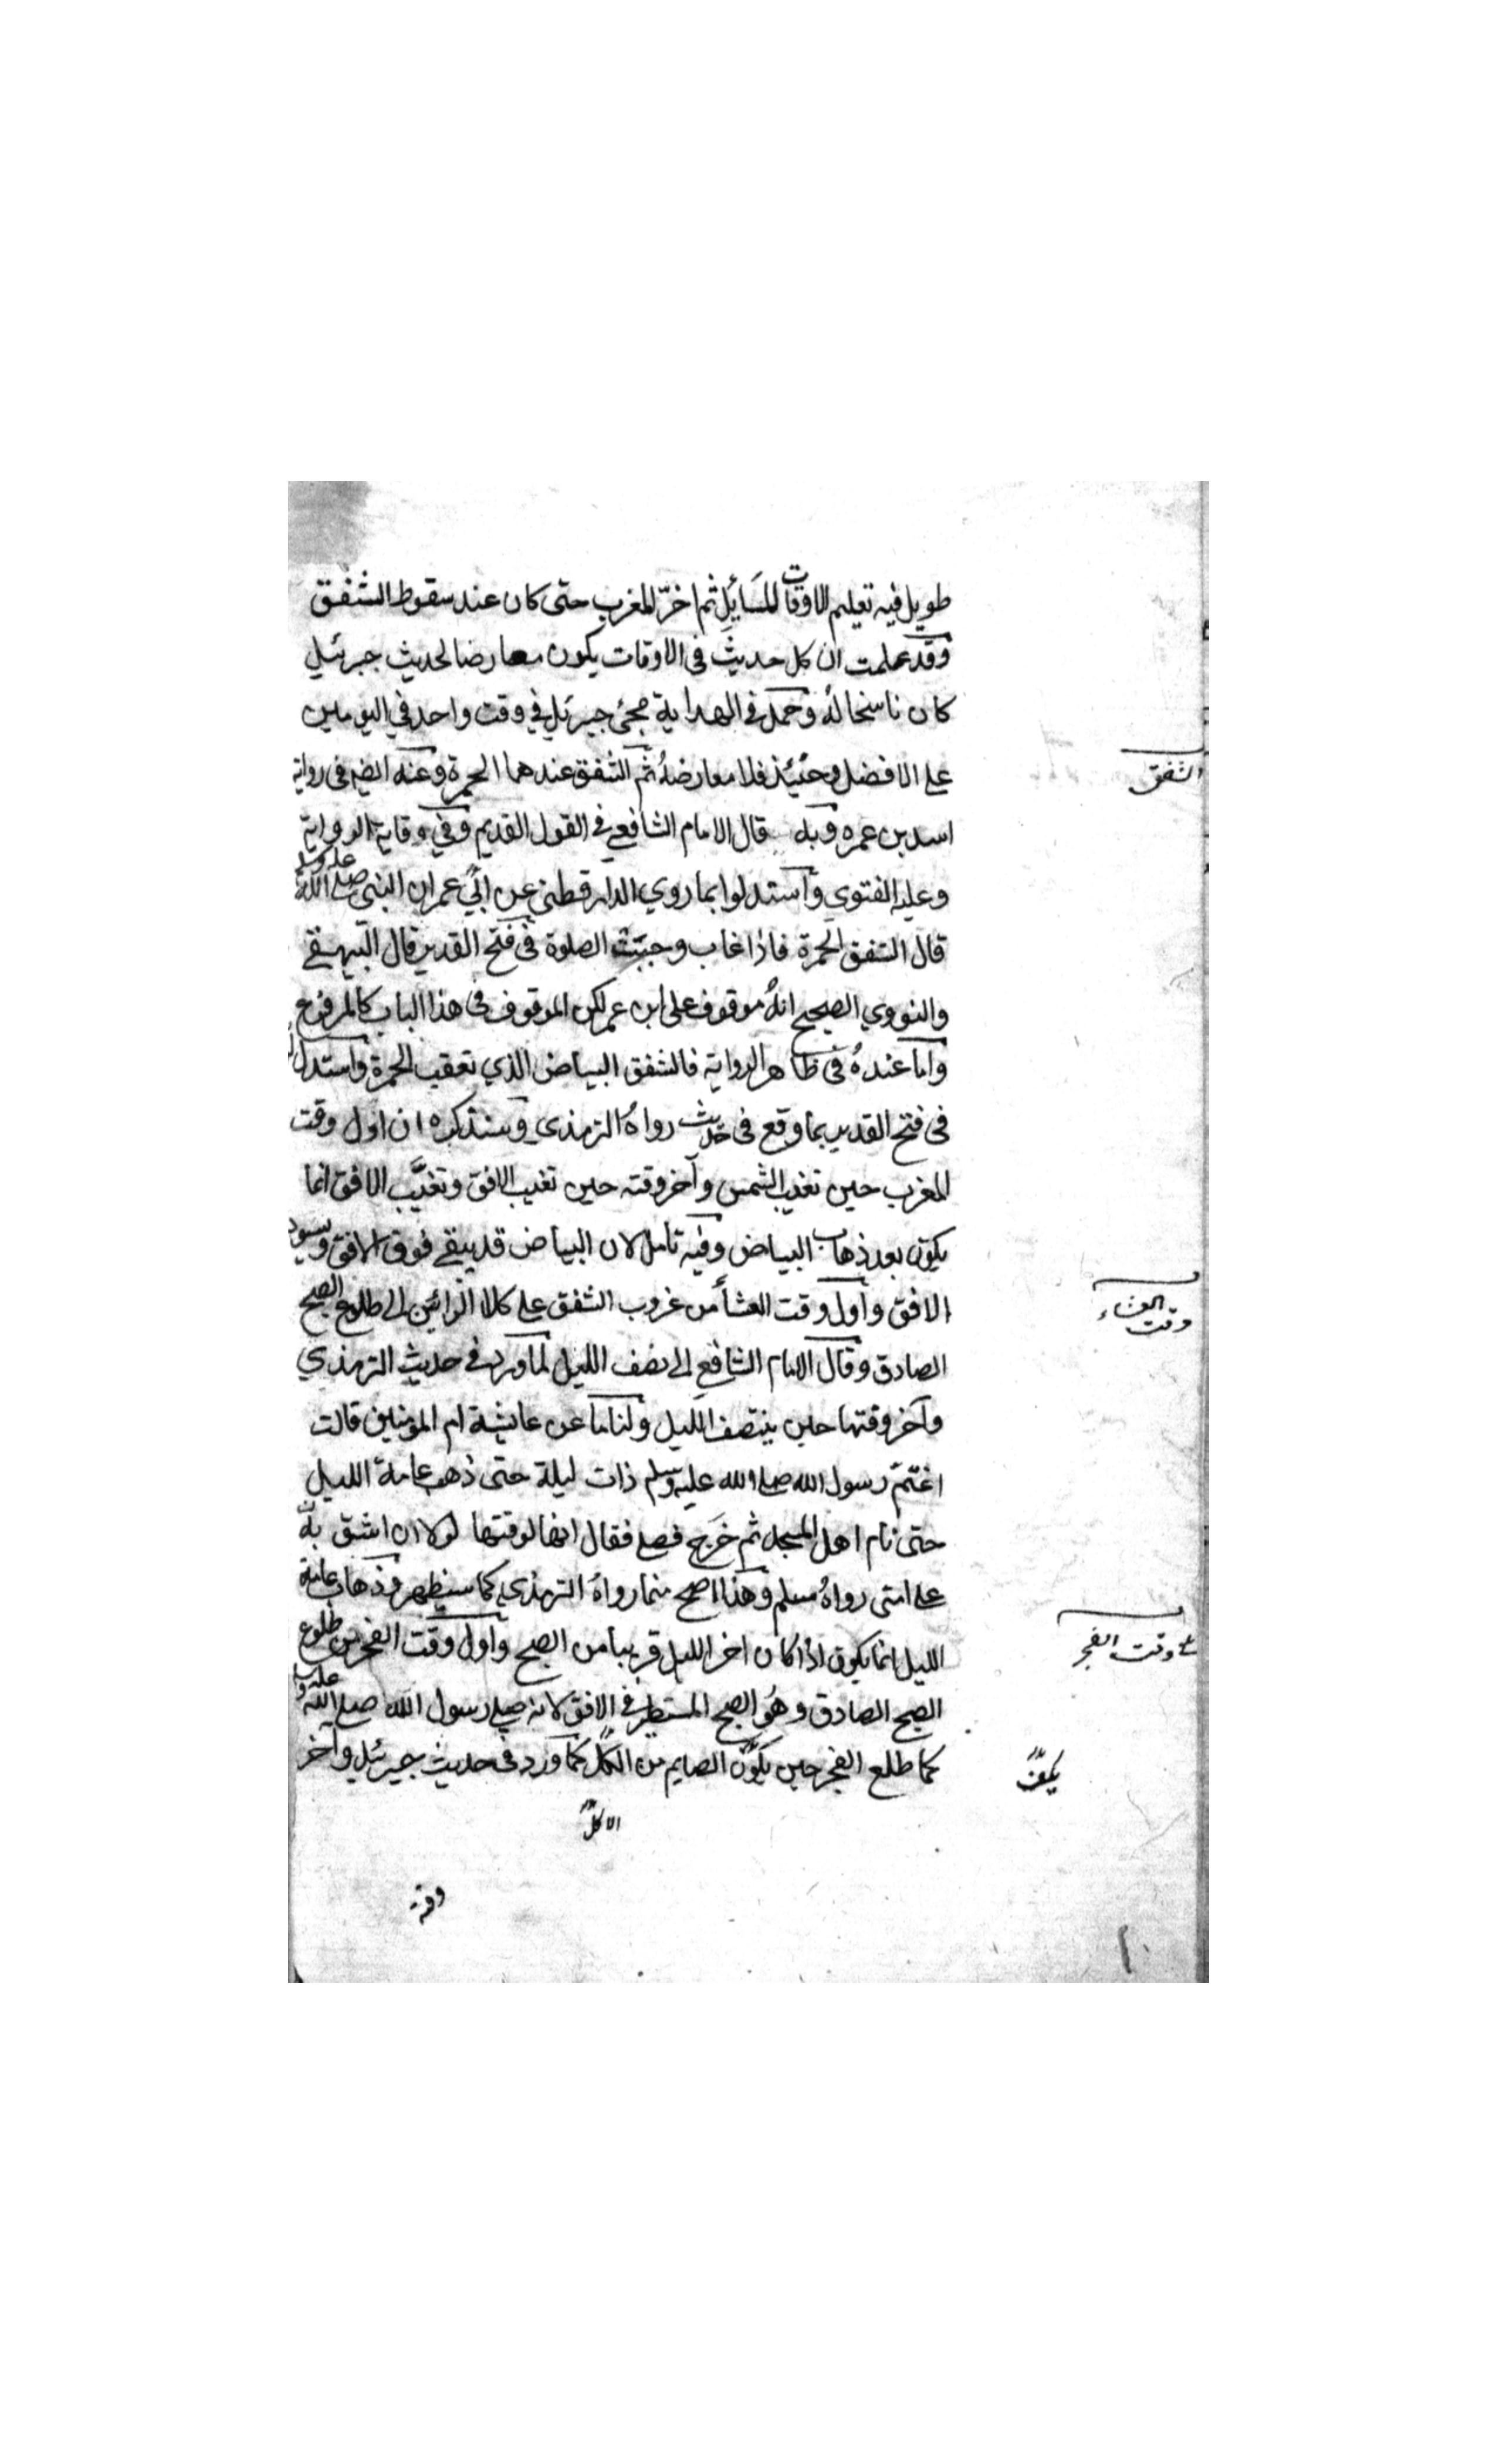 طويل فيه تعليم الاوقات للسائل ثم اخرّ المغرب حتى كان عند سقوط الشفق
وقد علمت ان كل حديث في الاوقات يكون معارضا لحديث جبرئيل
كان ناسخا لهُ وحمل في الهداية مجئ جبرئيل في وقت واحد في اليومين
على الافضل وحنيئذ فلا معارضهُ ثم الشفق عندهما الحمرة وعنه ايضا في رواية
الشفق
اسد بن عمره وبه قال الامام الشافعي في القول القديم وفي وقاية الرواية
وعليه الفتوى واستدلوا بما روي الدارقطني عن ابي عمر ان النبي صلى الله عليه وسلم
قال الشفق الحمرة فاذا غاب وجبت الصلوة في فتح القدير قال البيهقي
والنووي الصحيح انهُ موقوف على ابن عمر لكن الموقوف في هذا الباب كالمرفوع
واما عندهُ في ظاهر الرواية فالشفق البياض الذي تعقب الحمرة واستدل
في فتح القدير بما وقع في حديث رواهُ الترمذي وسنذكره ان اول وقت
المغرب حين تغيب الشمس وآخر وقته حين تغيب الافق وتغيّب الافق انما
يكون بعد ذهاب البياض وفيه تامل لان البياض قد يبقى فوق الافق ويسود
الافق واول وقت العشاء من غروب الشفق على كلا الرائين الى طلوع الصبح
وقت العشاء
الصادق وقال الامام الشافعي الى نصف الليل لما ورد في حديث الترمذي
وآخر وقتها حين ينتصف الليل ولنا ما عن عايشة ام المؤمنين قالت
اغتمّ رسول الله صلى الله عليه وسلم ذات ليلة حتى ذهب عامة الليل
حتى نام اهل المسجد ثم خرج فصلى فقال انها لوقتها لولا ان اشق به
على امتى رواهُ مسلم وهذا اصح مما رواهُ الترمذي كما سيظهر وذهاب عامة
الليل انما يكون اذا كان اخر الليل قريبا من الصبح واول وقت الفجر من طلوع
وقت الفجر
الصبح الصادق وهُو الصبح المستطير في الافق لانه صلى رسول الله صلى الله عليه و
كما طلع الفجر حين يكون الصايم من الكل كما ورد في حديث جبرئيل وآخر
يكفّ
الاكل
وقته